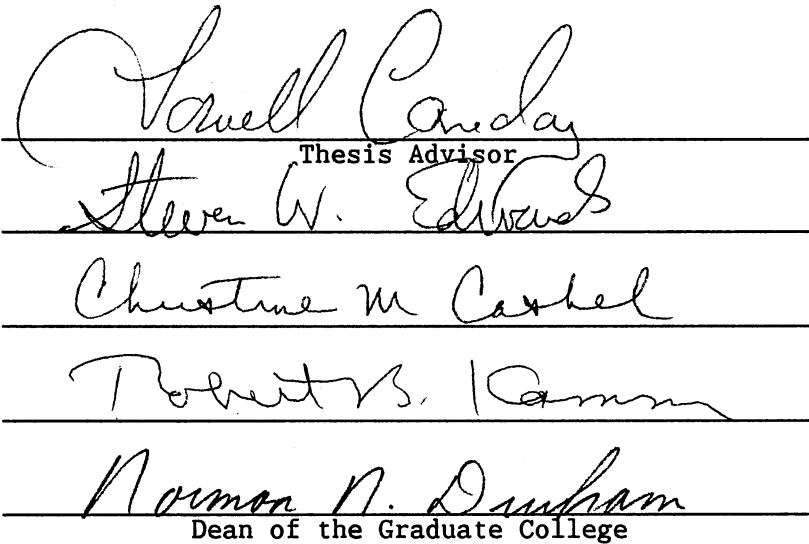 Lowell Caneday
Thesis Advisor
Steven W. Edwards
Christine M Cashel
Robert B. Kamm
Norman N. Durham
Dean of the Graduate College